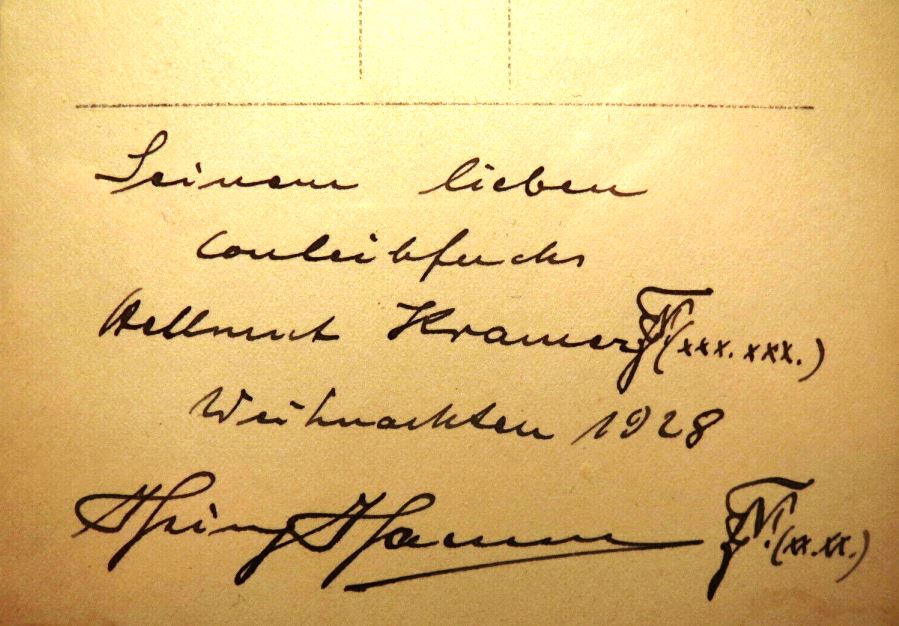 Seinem lieben
Couleibfuchs
Hellmut Kramer (xxx.xxx.)
Weihnachten 1928
Heinz Hamm (xx.xx.)